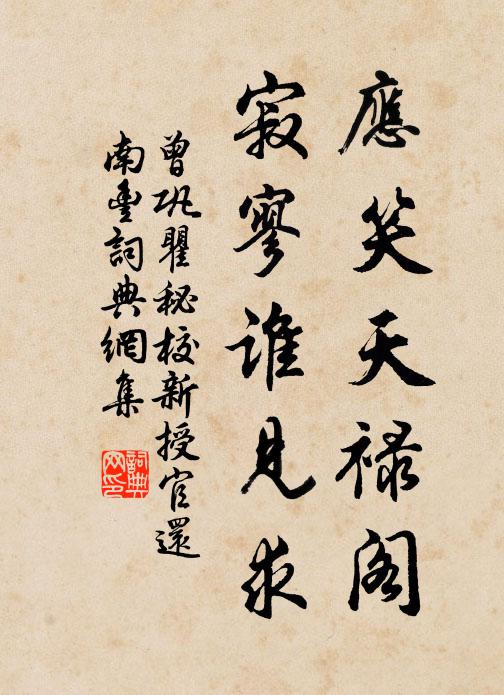 應笑天祿阁
寂寥誰見求
曾巩瞿秘校新授官還
南豊詞典網集
詞典
网印